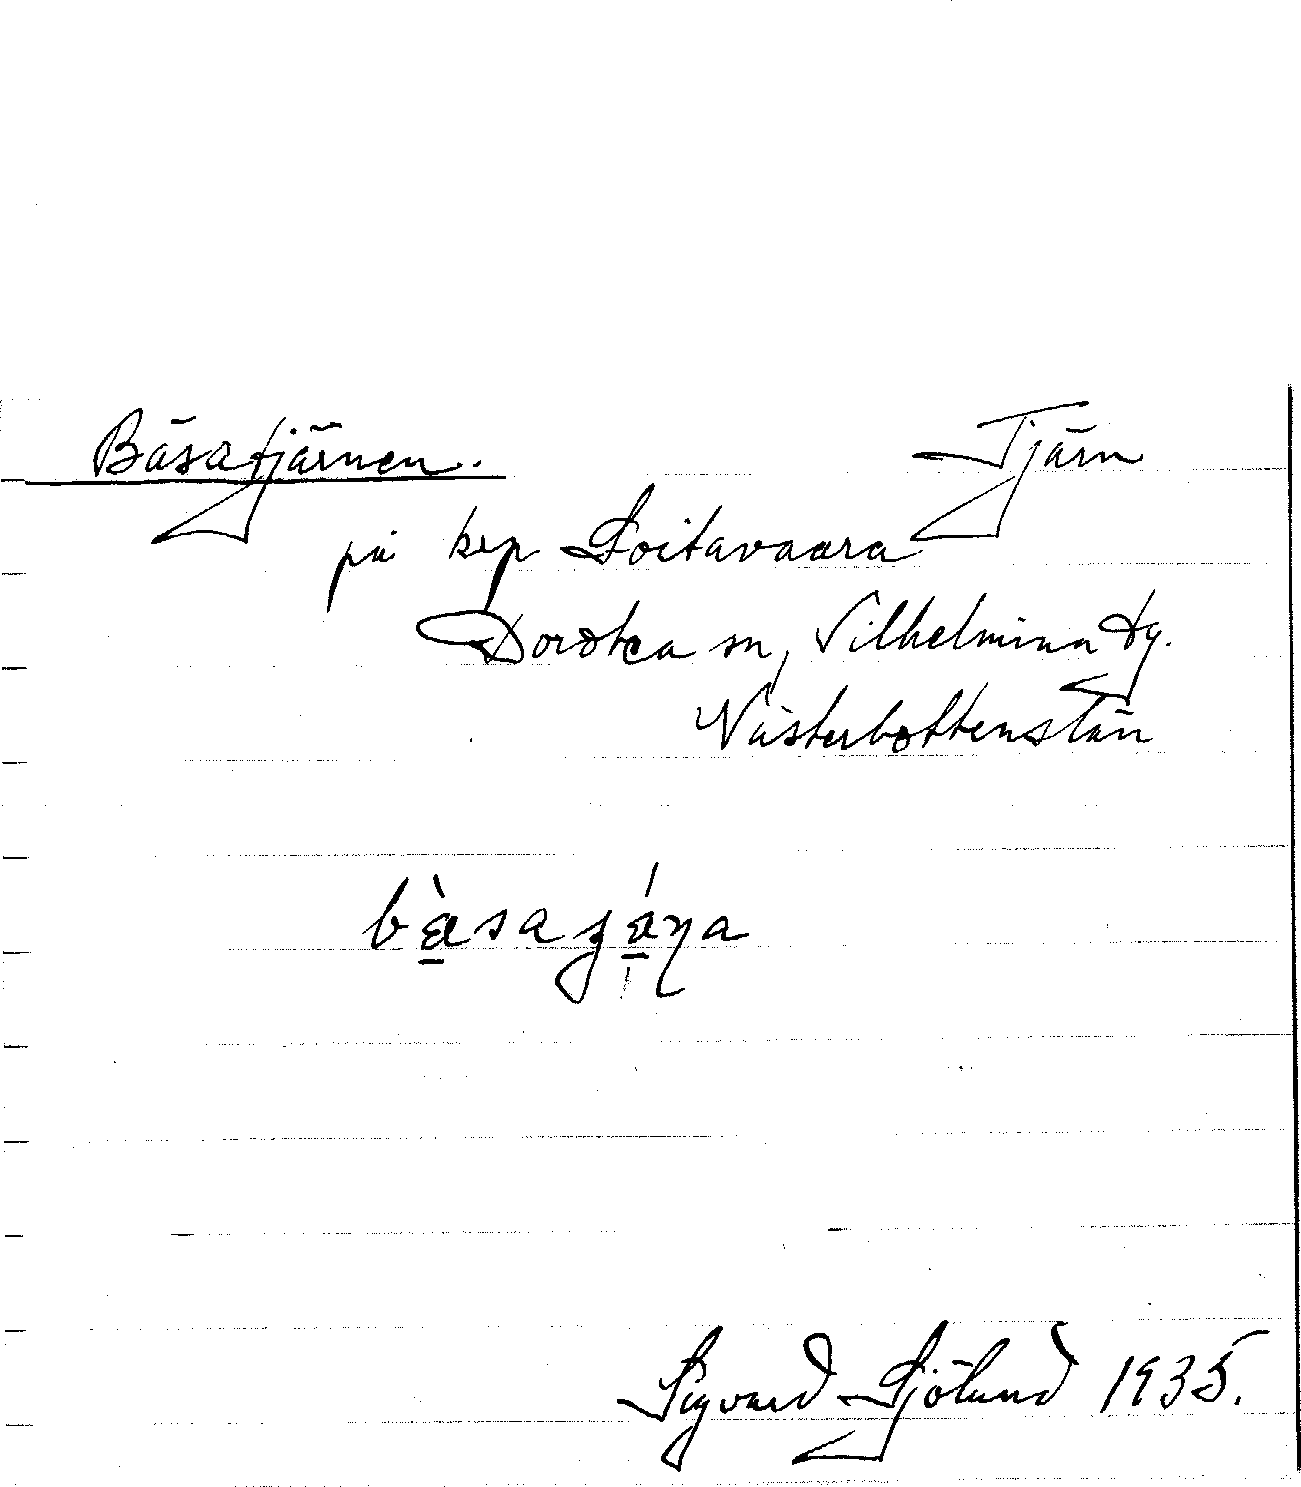 Bäsatjärnen. Tjärn
på krp Soitavaara
Dorotea sn, Vilhelmina tg.
Västerbottens län
Sigvard Sjölund 1935.